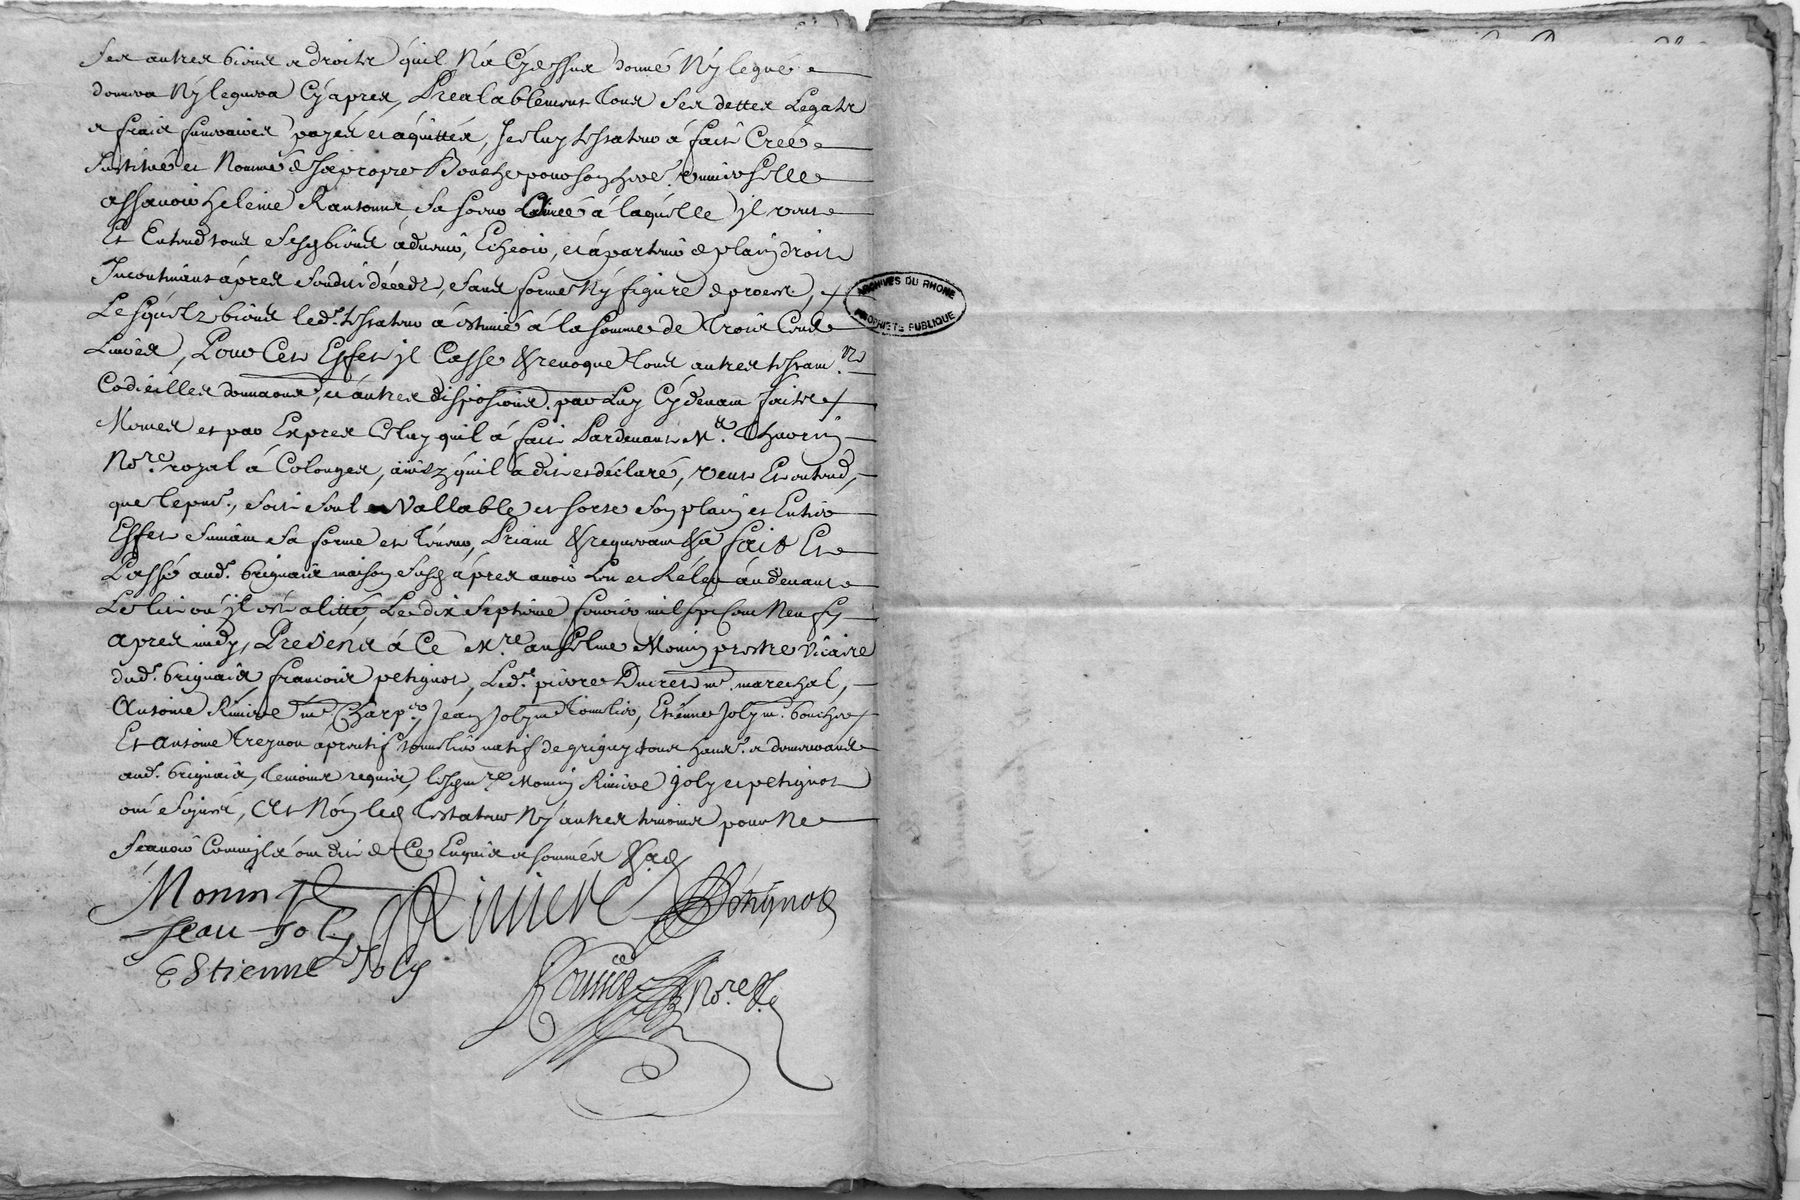 Ses autres biens & droits quil Na Cydessus donné Ny legué &
donnera Ny leguera Cyapres, Prealablement tous ses dettes Legats
& fraix funeraires payés et aquittés, Iceluy testateur à fait Creé &
Institué et Nommé de sa propre Bouche pour son here. universelle
assavoir heleine sa soeur à laquelle jl veut
Et Entend tous sesd biens advenir, Echeoir, et apartenir de plain droit
Incontinant apres sondit décedz, sans forme Ny figure de proces,
Lesquelz biens led. testateur à estimé à la somme de trois Cent
Livres, Pour Cet Effet jl Casse & revoque tous autres testam.nts
Codicilles donnaons, et autres dispositions par Luy Cydevant faites
Memes et par Expres Celuy quil à fait Pardevant Me.
No.re royal à Colonges, ainsy quil à dit et déclaré, veut Et entend,
que le pnt., soit seul Vallable et sorte son plain et Entier
Effet suivant sa forme et teneur, Priant & requerant &a fait Et
Passé aud. brignais maison susd apres avoir Leu et Releu audevant
Le lit où jl est alitté, Le dix septieme fevrier mil sept Cent Neuf
apres midy, Presens à Ce M.re anselme Monin prestre vicaire
dud. brignais, francois petignot, Led. pierre Ducret m.e marechal,
Antoine Riviere m.e Charp.er Jean Joly m.e tonnelier, Etienne Joly m.e boucher
Et antoine aprentif tonnelier natif de grigny tous habit. & demeurants
aud. brignais, temoins requis, lesqu. m.re Monin Riviere Joly et petignot
ont signé, Et Non led testateur Ny autres temoins pour Ne
scavoir Comm'jls ont dit de Ce Enquis & sommés &ad
Monin Riviere Petignot
Jean Joly
Estienne Joly
No.re R.
ARCHIVES DU RHONE
PROPRIETE PUBLIQUE